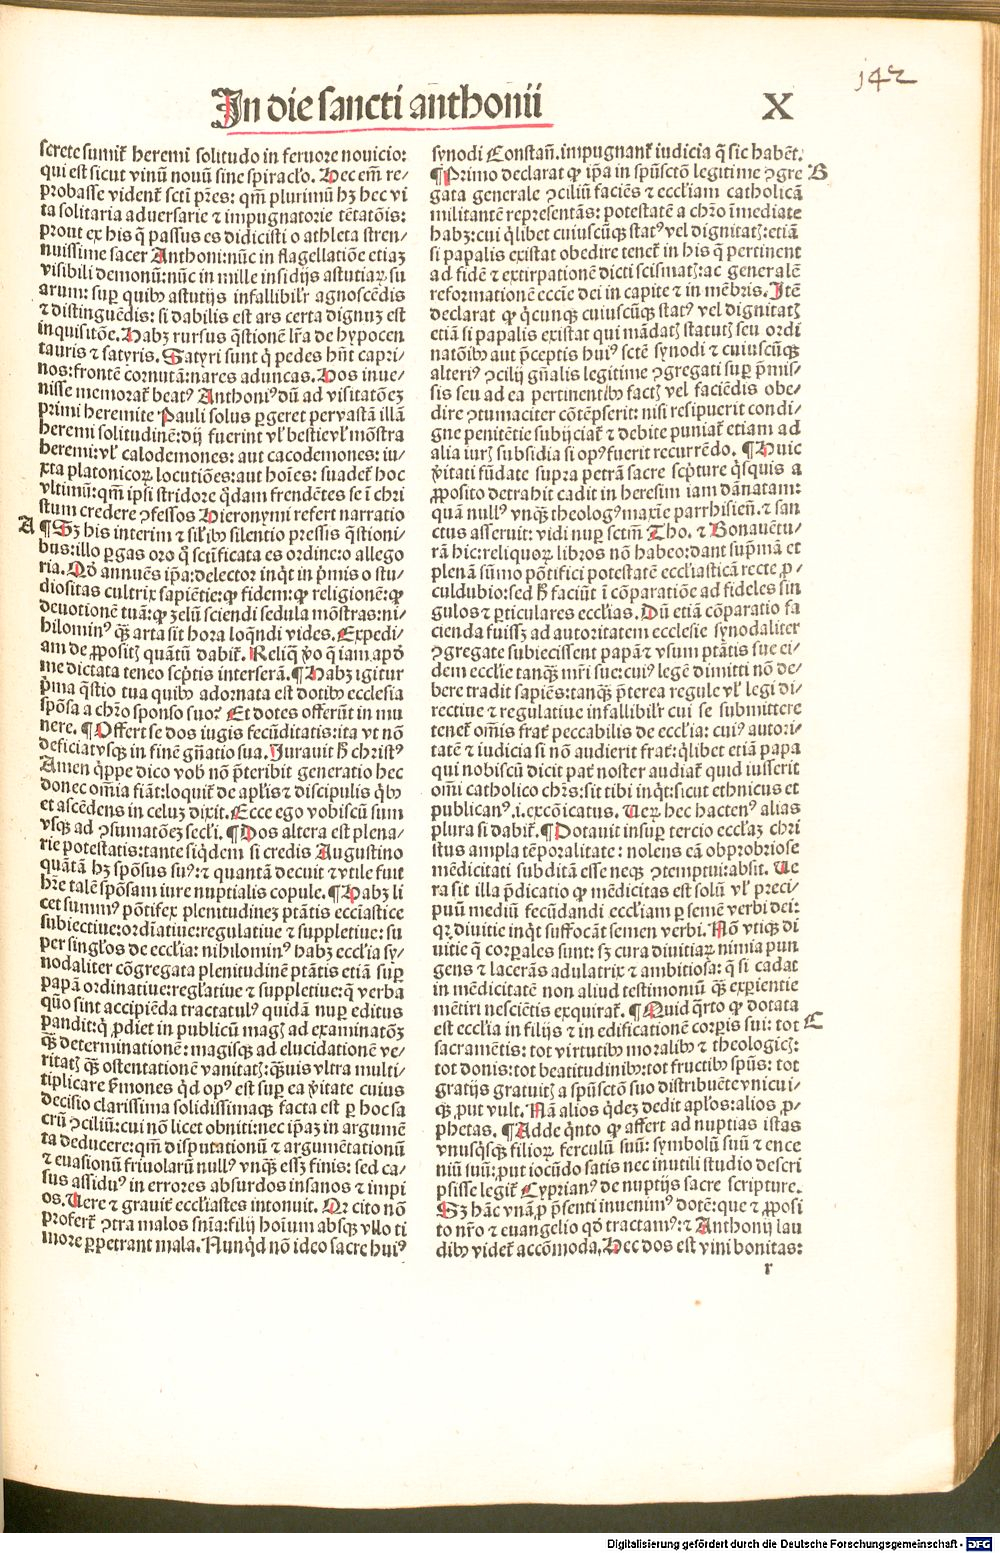 142
In die sancti anthonii X
serete sumit̉ heremi solitudo in feruore nouicio:
qui est sicut vinū nouū sine spiraclo. Hec em̄ re-
probasse vident̉ scti pr̄es: qm̄ plurimū hꝫ hec vi
ta solitaria aduersarie ⁊ impugnatorie tētatōis:
prout ex his q̄ passus es didicisti o athleta stren/
nuissime sacer Anthoni: nūc in flagellatiōe etiaꝫ
visibili demonū: nūc in mille insidijs astutiaꝝ su
arum: suꝑ quibꝰ astutijs infallibilr̄ agnoscēdis
⁊ distinguēdis: si dabilis est ars certa dignuꝫ est
inquisitōe. Habꝫ rursus q̄stionē lr̄a de hypocen
tauris ⁊ satyris. Satyri sunt q̇ pedes hn̄t capri-
nos: frontē cornutā: nares aduncas. Hos inue/
nisse memorat̉ beatꝰ Anthoniꝰ dū ad visitatōeꝫ
primi heremite Pauli solus ꝑgeret per vastā illā
heremi solitudinē: dij fuerint vl̉ bestie vl̉ mōstra
heremi: vl̉ calodemones: aut cacodemones: iu-
xta platonicoꝝ locutiōes: aut hoīes: suadet̉ hoc
vltimū: qm̄ ipsi stridore q̇dam frendētes se ī chri
stum credere ꝯfessos Hieronymi refert narratio
A ¶ Sꝫ his interim ⁊ sil̉ibꝰ silentio pressis q̄stioni-
bus: illo ꝑgas oro q̄ sctīficata es ordine: o allego
ria. Qd̄ annuēs ip̄a: delector inq̇t in p̄mis o stu-
diositas cultrix sapiētie: ꝙ fidem: ꝙ religionē: ꝙ
deuotionē tuā: ꝙ zelū sciendi sedula mōstras: ni-
hilominꝰ q̄ꝫ arta sit hora loq̄ndi vides. Expedi-
am de ꝓpositꝭ quātū dabit̉. Reliq̄ ꝟo q̄ iam apd̄
me dictata teneo scp̄tis interserā. ¶ Habꝫ igitur
p̄ma q̄stio tua quibꝰ adornata est dotibꝰ ecclesia
spōsa a chro sponso suo? Et dotes offerūt in mu
nere. ¶ Offert se dos iugis fecūditatis: ita vt nō
deficiat vsqꝫ in finē gn̄atio sua. Jurauit h̄ christꝰ
Amen q̇ppe dico vob̉ nō p̄teribit generatio hec
donec om̄ia fiāt: loquit̉ de apl̉is ⁊ discipulis q̇bꝰ
et ascēdens in celuꝫ dixit. Ecce ego vobiscū sum
vsqꝫ ad ꝯsumatōeꝫ secl̉i. ¶ Dos altera est plena-
rie potestatis: tante siq̇dem si credis Augustino
quātā hꝫ spōsus suꝰ: ⁊ quantā decuit ⁊ vtile fuit
hr̄e talē spōsam iure nuptialis copule. ¶ Habꝫ li
cet summꝰ pōtifex plenitudineꝫ ptātis ecciastice
subiectiue: ordiatiue: regulatiue ⁊ suppletiue: su
per singl̉os de eccl̉ia: nihilominꝰ habꝫ eccl̉ia sy-
nodaliter cōgregata plenitudinē ptātis etiā suꝑ
papā ordinatiue: regl̉atiue ⁊ suppletiue: q̄ verba
quo sint accipiēda tractatulꝰ quidā nuꝑ editus
pandit: q̇ ꝓdiet in publicū magꝭ ad examinatōꝫ
q̄ꝫ determinationē: magisqꝫ ad elucidationē ve/
ritatꝭ q̄ꝫ ostentationē vanitatꝭ: q̄ꝫuis vltra multi-
tiplicare f̄mones q̇d opꝰ est suꝑ ea ꝟitate cuius
decisio clarissima solidissimaqꝫ facta est ꝑ hoc sa
crū ꝯciliū: cui nō licet obniti: nec ip̄aꝫ in argumē
ta deducere: qm̄ disputationū ⁊ argumētationū
⁊ euasionū friuolarū nullꝰ vnq̄ꝫ essꝫ finis: sed ca-
sus assiduꝰ in errores absurdos insanos ⁊ impi
os. Uere ⁊ grauit̉ eccl̉iastes intonuit. Qr cito nō
profert̉ ꝯtra malos sn̄ia: filij hoīum absqꝫ vllo ti
more ꝑpetrant mala. Nunq̇d nō ideo sacre huiꝰ
synodi Constan̄. impugnant̉ iudicia q̄ sic habēt.
¶ Primo declarat ꝙ ip̄a in spūsctō legitime ꝯgre B
gata generale ꝯciliū faciēs ⁊ eccl̉iam catholicā
militantē representās: potestatē a chro īmediate
habꝫ: cui q̇libet cuiuscūqꝫ statꝰ vel dignitatꝭ: etiā
si papalis existat obedire tenet̉ in his q̄ pertinent
ad fidē ⁊ extirpationē dicti scismatꝭ: ac generalē
reformationē eccīe dei in capite ⁊ in mēbris. Itē
declarat ꝙ q̇cunqꝫ cuiuscūqꝫ statꝰ vel dignitatꝭ
etiā si papalis existat qui mādatꝭ statutꝭ seu ordi
natōibꝰ aut p̄ceptis huiꝰ sctē synodi ⁊ cuiuscūqꝫ
alteriꝰ ꝯcilij gn̄alis legitime ꝯgregati suꝑ p̄mis/
sis seu ad ea pertinentibꝰ factꝭ vel faciēdis obe/
dire ꝯtumaciter cōtēpserit: nisi resipuerit condi/
gne penitētie subijciat̉ ⁊ debite puniat̉ etiam ad
alia iurꝭ subsidia si opꝰ fuerit recurrēdo. ¶ Huic
ꝟitati fūdate supra petrā sacre scp̄ture q̇squis a
ꝓposito detrahit cadit in heresim iam dānatam:
quā nullꝰ vnq̄ꝫ theologꝰ maxīe parrhisien̄. ⁊ san
ctus asseruit: vidi nuꝑ sctm̄ Tho. ⁊ Bonauētu-
rā hic: reliquoꝝ libros nō habeo: dant sup̄mā et
plenā sūmo pōtifici potestatē eccl̉iasticā recte ꝓ-
culdubio: sed h̄ faciūt ī cōparatiōe ad fideles sin
gulos ⁊ ꝑticulares eccl̉ias. Dū etiā cōparatio fa
cienda fuissꝫ ad autoritatem ecclesie synodaliter
ꝯgregate subiecissent papā ⁊ vsum ptātis sue ei-
dem eccl̉ie tanq̄ꝫ mr̄i sue: cuiꝰ legē dimitti nō de-
bere tradit sapiēs: tanq̄ꝫ p̄terea regule vl̉ legi di-
rectiue ⁊ regulatiue infallibilr̄ cui se submittere
tenet̉ om̄is frat̉ peccabilis de eccl̉ia: cuiꝰ autori-
tatē ⁊ iudicia si nō audierit frat̉: q̇libet etiā papa
qui nobiscū dicit pat̉ noster audiat̉ quid iusserit
om̄i catholico chr̄s: sit tibi inq̇t: sicut ethnicus et
publicanꝰ .i. excōicatus. Ueꝝ hec hactenꝰ alias
plura si dabit̉. ¶ Dotauit insuꝑ tercio eccl̉aꝫ chri
stus ampla tēporalitate: nolens eā obprobriose
mēdicitati subditā esse neqꝫ ꝯtemptui: absit. Ue
ra sit illa p̄dicatio ꝙ mēdicitas est solū vl̉ preci-
puū mediū fecūdandi eccl̉iam ꝑ semē verbi dei:
qꝛ diuitie inq̇t suffocāt semen verbi. Nō vtiqꝫ di
uitie q̄ corꝑales sunt: sꝫ cura diuitiaꝝ nimia pun
gens ⁊ lacerās adulatrix ⁊ ambitiosa: q̄ si cadat
in mēdicitatē non aliud testimoniū q̄ꝫ experientie
mētiri nesciētis exquirat̉. ¶ Quid q̇rto ꝙ dotata
est eccl̉ia in filijs ⁊ in edificationē corꝑis sui: tot C
sacramētis: tot virtutibꝰ moralibꝰ ⁊ theologicꝭ:
tot donis: tot beatitudinibꝰ: tot fructibꝰ spūs: tot
gratijs gratuitꝭ a spūsctō suo distribuēte vnicui-
qꝫ ꝓut vult. Nā alios q̇deꝫ dedit apl̉os: alios ꝓ-
phetas. ¶ Adde q̇nto ꝙ affert ad nuptias istas
vnusq̇sqꝫ filioꝝ ferculū suū: symbolū suū ⁊ ence
niū suū: ꝓut iocūdo satis nec inutili studio descri
psisse legit̉ Cyprianꝰ de nuptijs sacre scripture.
Sꝫ hāc vnā ꝓ p̄senti inuenimꝰ dotē: que ⁊ ꝓposi
to nr̄o ⁊ euangelio qd̄ tractamꝰ: ⁊ Anthonij lau
dibꝰ videt̉ accōmoda. Hec dos est vini bonitas:
r
Digitalisierung gefördert durch die Deutsche Forschungsgemeinschaft - DFG